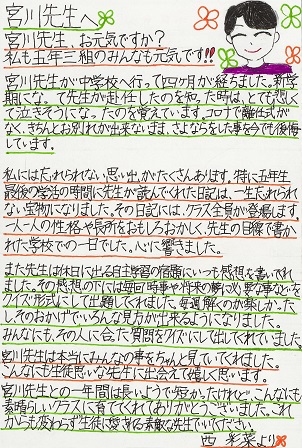 宮川先生へ
宮川先生、お元気ですか？
私も五年三組のみんなも元気です!!
宮川先生が中学校へ行って四ヶ月が経ちました。新学
期になって先生が赴任したのを知った時は、とても悲しく
て泣きそうになったのを覚えています。コロナで離任式が
なく、きちんとお別れが出来ないまま、さよならをした事を今でも後悔
しています。
私にはわすれられない思い出がたくさんあります。特に五年生
最後の学活の時間に先生が読んでくれた日記は、一生忘れられな
い宝物になりました。その日記には、クラス全員が登場します
一人一人の性格や長所をおもしろおかしく、先生の目線で書か
れた学校での一日でした。心に響きました。
また先生は休日に出る自主学習の宿題にいつも感想を書いてくれ
ました。その感想の下には毎回時事や将来の夢に必要な事などを
クイズ形式にして出題してくれました。毎週解くのが楽しかったし
、そのおかげでいろんな見方が出来るようになりました。
みんなにも、その人に合った質問をクイズにして出してくれていました。
宮川先生は本当にみんなの事をちゃんと見ていてくれました。
こんなにも生徒思いな先生に出会えて嬉しく思います。
宮川先生との一年間は長いようで短かったけれど、こんなにも
素晴らしいクラスに育ててくれてありがとうございました。これ
からも変わらず生徒に愛される素敵な先生でいてください。
西 彩菜より